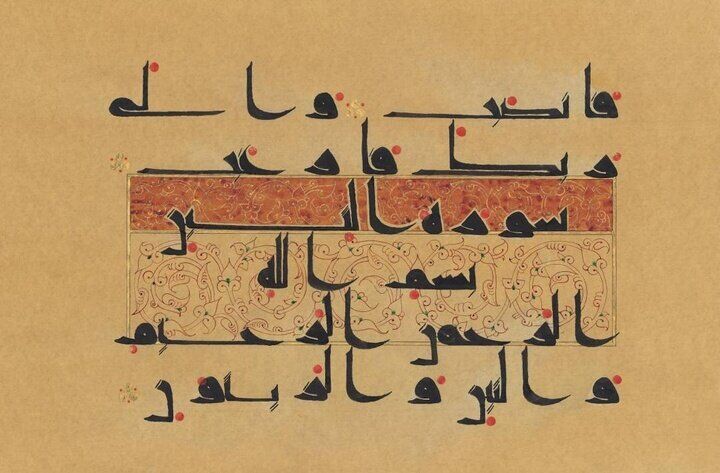 فانصب وإلى
ربك فارغب
سورة التين
بسم الله
الرحمن الرحيم
والتين والزيتون